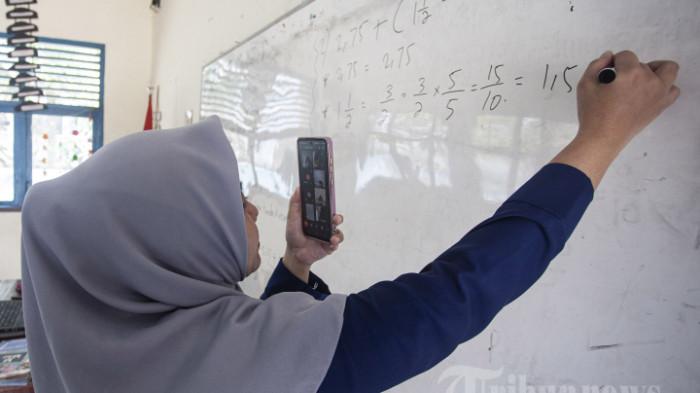 2,75 + ( 1 1/2
* 2,75 = 2,75
* 1 1/2 = 3/2 = 3/2 × 5/5 = 15/10 = 1,5
Tribunnews